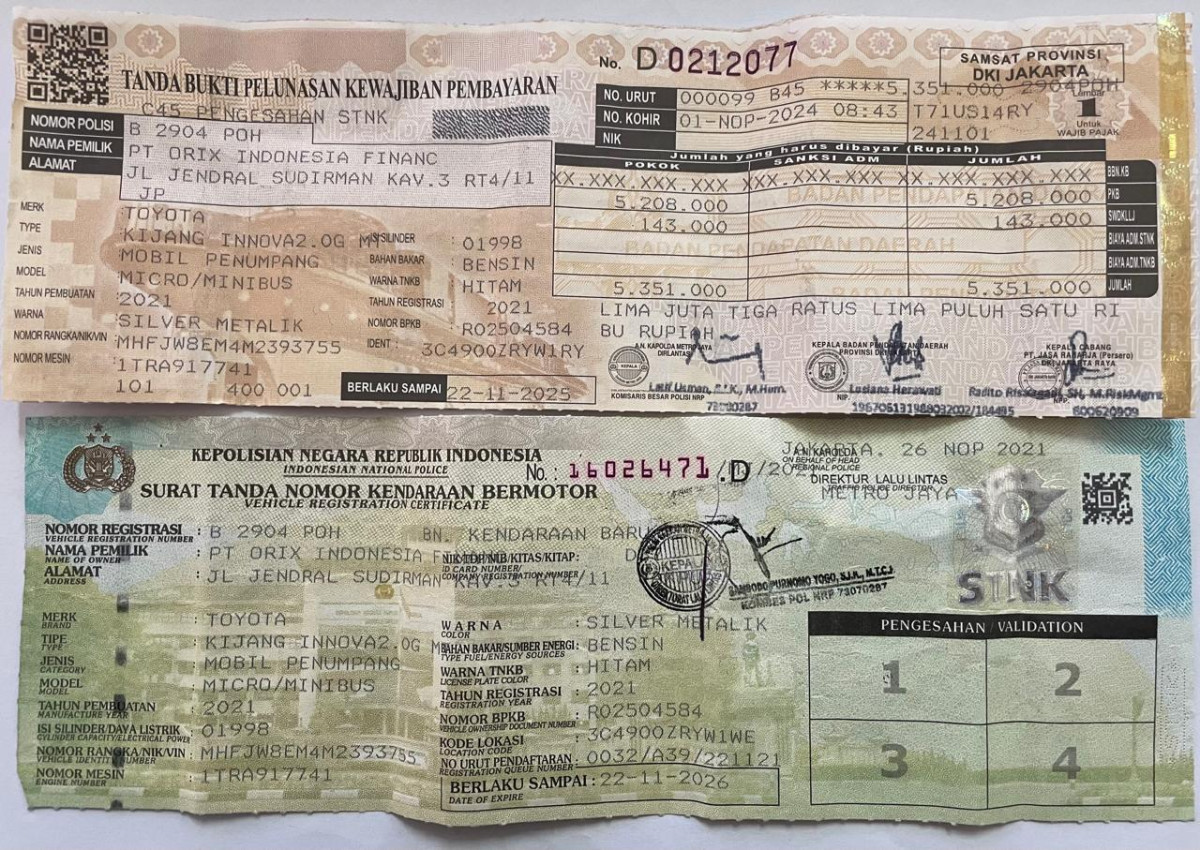 No. D 0212077
SAMSAT PROVINSI
DKI JAKARTA
TANDA BUKTI PELUNASAN KEWAJIBAN PEMBAYARAN
C45 PENGESAHAN STNK
NO. URUT 000099 B45 *****5.351.000 2904POH
NO. KOHIR 01-NOP-2024 08:43 T71US14RY
NIK 241101
Lembar
1
Untuk
WAJIB PAJAK
NOMOR POLISI B 2904 POH
NAMA PEMILIK PT ORIX INDONESIA FINANC
ALAMAT JL JENDRAL SUDIRMAN KAV.3 RT4/11
JP
Jumlah yang harus dibayar (Rupiah)
POKOK SANKSI ADM JUMLAH
XX.XXX.XXX.XXX XXX.XXX.XXX.XXX XX.XXX.XXX.XXX BBN.KB
5.208.000 5.208.000 PKB
143.000 143.000 SWDKLLJ
BIAYA ADM.STNK
BIAYA ADM.TNKB
5.351.000 5.351.000 JUMLAH
LIMA JUTA TIGA RATUS LIMA PULUH SATU RI
BU RUPIAH
MERK : TOYOTA
TYPE : KIJANG INNOVA2.0G M ISI SILINDER : 01998
JENIS : MOBIL PENUMPANG BAHAN BAKAR : BENSIN
MODEL : MICRO/MINIBUS WARNA TNKB : HITAM
TAHUN PEMBUATAN : 2021 TAHUN REGISTRASI : 2021
WARNA : SILVER METALIK NOMOR BPKB : R02504584
NOMOR RANGKA/NIK/VIN : MHFJW8EM4M2393755 IDENT : 3C4900ZRYW1RY
NOMOR MESIN : 1TRA917741
101 400 001 BERLAKU SAMPAI 22-11-2025
A.N. KAPOLDA METRO JAYA
DIRLANTAS
KEPALA
Latif Usman, S.I.K, M.Hum.
KOMISARIS BESAR POLISI NRP
73080287
KEPALA BADAN PENDAPATAN DAERAH
PROVINSI DKI
Lusiana Herawati
NIP.
196706131988032002/184495
KEPALA CABANG
PT. JASA RAHARJA (Persero)
DKI JAKARTA RAYA
SH, M.RiskMgmt
600620909
KEPOLISIAN NEGARA REPUBLIK INDONESIA
INDONESIAN NATIONAL POLICE
No. : 16026471 .D
SURAT TANDA NOMOR KENDARAAN BERMOTOR
VEHICLE REGISTRATION CERTIFICATE
JAKARTA, 26 NOP 2021
A.N KAPOLDA
ON BEHALF OF HEAD
REGIONAL POLICE
DIREKTUR LALU LINTAS
TRAFFIC POLICE DIRECTOR
METRO JAYA
KEPALA
BAMBODO PURNOMO YOGO, S.I.K., M.T.C.J
KOMBES POL NRP 73070287
STNK
NOMOR REGISTRASI : B 2904 POH BN. KENDARAAN BARU
VEHICLE REGISTRATION NUMBER
NAMA PEMILIK : PT ORIX INDONESIA
NAME OF OWNER
NIK/TDP/NIB/KITAS/KITAP:
ID CARD NUMBER/
COMPANY REGISTRATION NUMBER
ALAMAT : JL JENDRAL SUDIRMAN KAV.3 RT4/11
ADDRESS
MERK : TOYOTA
BRAND
TIPE : KIJANG INNOVA2.0G M
TYPE
JENIS : MOBIL PENUMPANG
CATEGORY
MODEL : MICRO/MINIBUS
MODEL
TAHUN PEMBUATAN : 2021
MANUFACTURE YEAR
ISI SILINDER/DAYA LISTRIK : 01998
CYLINDER CAPACITY/ELECTRICAL POWER
NOMOR RANGKA/NIK/VIN : MHFJW8EM4M2393755
VEHICLE IDENTITY NUMBER
NOMOR MESIN : 1TRA917741
ENGINE NUMBER
WARNA : SILVER METALIK
COLOR
BAHAN BAKAR/SUMBER ENERGI : BENSIN
TYPE FUEL/ENERGY SOURCES
WARNA TNKB : HITAM
LICENSE PLATE COLOR
TAHUN REGISTRASI : 2021
REGISTRATION YEAR
NOMOR BPKB : R02504584
VEHICLE OWNERSHIP DOCUMENT NUMBER
KODE LOKASI : 3C4900ZRYW1WE
LOCATION CODE
NO URUT PENDAFTARAN : 0032/A39/221121
REGISTRATION QUEUE NUMBER
BERLAKU SAMPAI : 22-11-2026
DATE OF EXPIRE
PENGESAHAN / VALIDATION
1 2
3 4